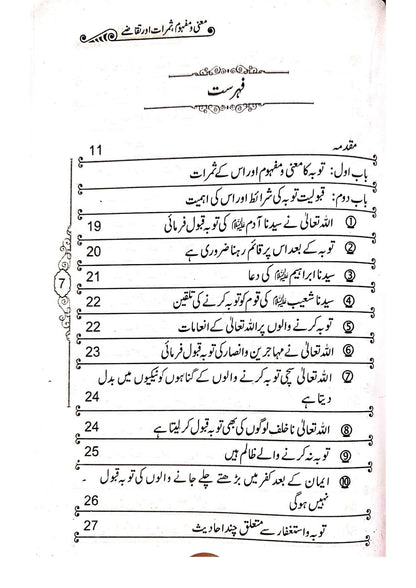 معنیٰ و مفہوم، ثمرات اور تقاضے
فہرست
مقدمہ 11
باب اول: توبہ کا معنی و مفہوم اور اس کے ثمرات
باب دوم: قبولیت توبہ کی شرائط اور اس کی اہمیت
① اللہ تعالیٰ نے سیدنا آدم علیہ السلام کی توبہ قبول فرمائی 19
② توبہ کے بعد اس پر قائم رہنا ضروری ہے 20
③ سیدنا ابراہیم علیہ السلام کی دعا 21
④ سیدنا شعیب علیہ السلام کی قوم کو توبہ کرنے کی تلقین 22
⑤ توبہ کرنے والوں پر اللہ تعالیٰ کے انعامات 22
⑥ اللہ تعالیٰ نے مہاجرین و انصار کی توبہ قبول فرمائی 23
⑦ اللہ تعالیٰ سچی توبہ کرنے والوں کے گناہوں کو نیکیوں میں بدل
دیتا ہے 24
⑧ اللہ تعالیٰ ناخلف لوگوں کی بھی توبہ قبول کر لیتا ہے 24
⑨ توبہ نہ کرنے والے ظالم ہیں 25
⑩ ایمان کے بعد کفر میں بڑھتے چلے جانے والوں کی توبہ قبول
نہیں ہوگی 26
توبہ و استغفار سے متعلق چند احادیث 27
7